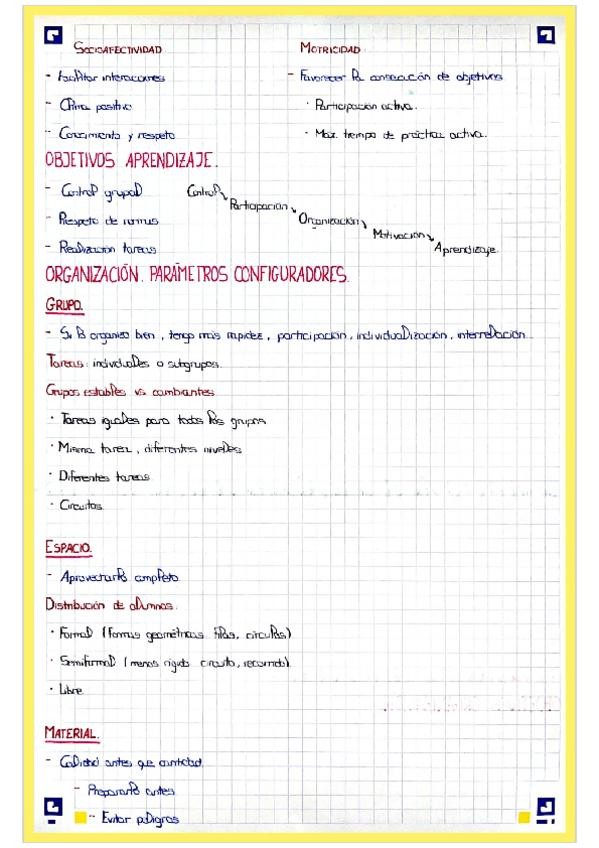 SOCIOAFECTIVIDAD
MOTRICIDAD
- Facilitar interacciones
- Favorecer la consecución de objetivos
- Clima positivo
· Participación activa.
- Conocimiento y respeto
· Máx. tiempo de práctica activa.
OBJETIVOS APRENDIZAJE.
- Control grupal
Control
Participación
- Respeto de normas
Organización
Motivación
- Realización tareas
Aprendizaje.
ORGANIZACIÓN. PARÁMETROS CONFIGURADORES.
GRUPO.
- Si lo organizo bien, tengo más rapidez, participación, individualización, interrelación
Tareas: individuales o subgrupos.
Grupos estables vs cambiantes
· Tareas iguales para todos los grupos
· Misma tarea, diferentes niveles
· Diferentes tareas
· Circuitos
ESPACIO.
- Aprovecharlo completo
Distribución de alumnos.
· Formal (formas geométricas: filas, círculos)
· Semiformal (menos rígido: circuito, recorrido)
· Libre
MATERIAL.
- Calidad antes que cantidad
- Prepararlo antes
- Evitar peligros